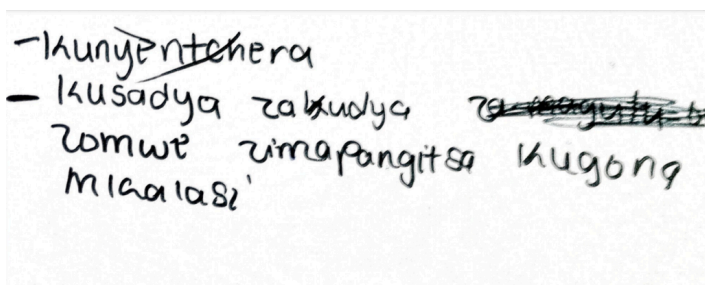 - Kunyentchera
- Kusadya zakudya
zomwe zimapangitsa kugona
mkalasi